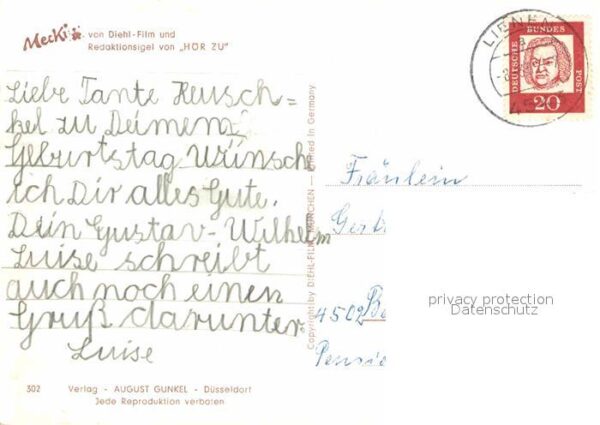 Mecki von Diehl-Film und
Redaktionsigel von „HÖR ZU"
Liebe Tante Heusch=
kel zu Deimem
Geburtstag Wünsche
ich Dir alles Gute.
Dein Gustav-Wilhelm
Luise schreibt
auch noch einen
Gruß darunter.
Luise
302 Verlag - AUGUST GUNKEL - Düsseldorf
Jede Reproduktion verboten
Copyright by DIEHL-FILM, MÜNCHEN — Printed in Germany
LIENEN
DEUTSCHE BUNDES POST
20
Fräulein
4502
privacy protection
Datenschutz